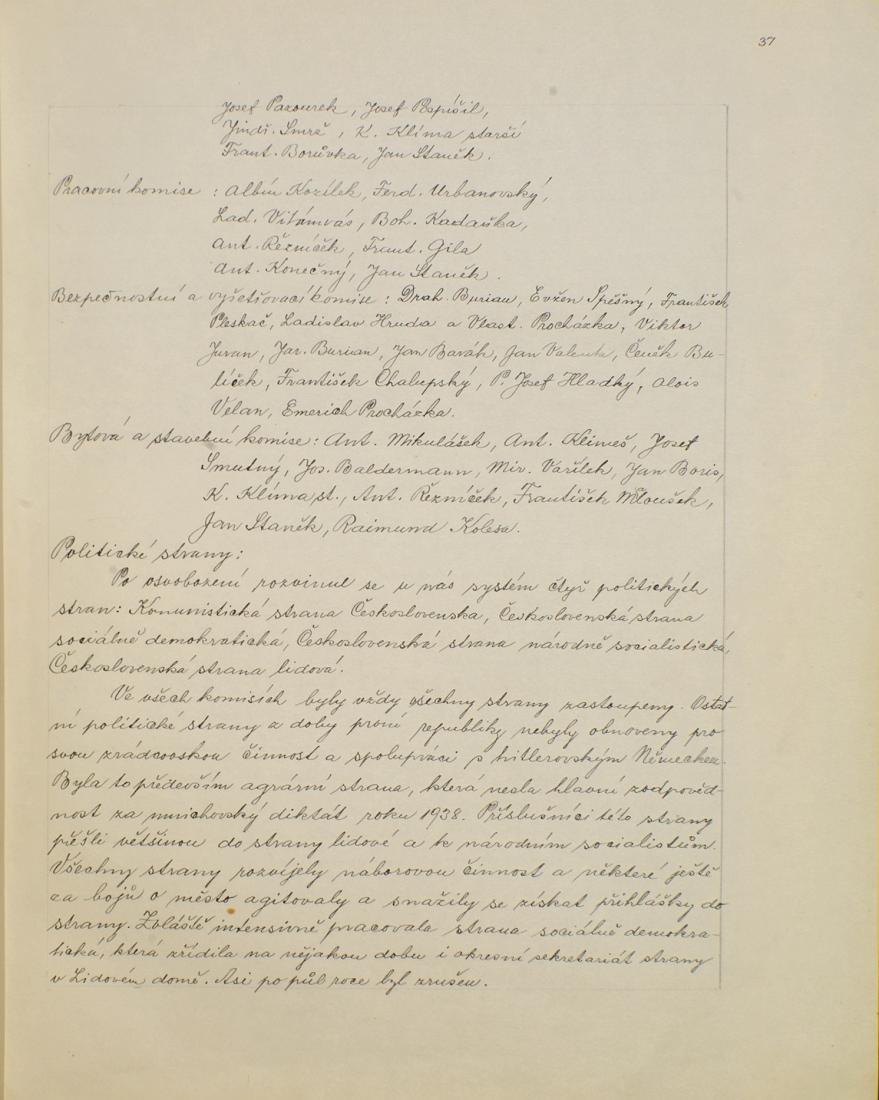 37
Josef Pazourek, Josef Pospíšil,
Jindř. Smrž, K. Klíma starší
Frant. Borůvka, Jan Staněk.
Pracovní komise : Albín Kozílek, Ferd. Urbanovský,
Lad. Vitámvás, Boh. Kadaňka,
Ant. Řezníček, Frant. Gila
Ant. Konečný, Jan Staněk.
Bezpečnostní a vyšetřovací komise : Drah. Burian, Evžen Spěšný, František
Pleskač, Ladislav Hruda a Vlast. Procházka, Viktor
Juran, Jar. Burian, Jan Bavák, Jan Valenta, Čeněk Bu-
líček, František Chalupský, P. Josef Hladký, Alois
Velan, Emerich Procházka.
Bytová a stavební komise : Ant. Mikulášek, Ant. Klimeš, Josef
Smutný, Jos. Baldermann, Mir. Vašílek, Jan Boris,
K. Klíma st., Ant. Řezníček, František Mloušek,
Jan Staněk, Raimund Kolesa.
Politické strany:
Po osvobození rozvinul se u nás systém čtyř politických
stran: Komunistická strana Československa, Československá strana
sociálně demokratická, Československá strana národně socialistická,
Československá strana lidová.
Ve všech komisích byly vždy všechny strany zastoupeny. Ostat-
ní politické strany z doby první republiky nebyly obnoveny pro
svou zrádcovskou činnost a spolupráci s hitlerovským Německem.
Byla to především agrární strana, která nesla hlavní zodpověd-
nost za mnichovský diktát roku 1938. Příslušníci této strany
přešli většinou do strany lidové a k národním socialistům.
Všechny strany rozvíjely náborovou činnost a některé ještě
za bojů o město agitovaly a snažily se získat přihlášky do
strany. Zvláště intensivně pracovala strana sociálně demokra-
tická, která zřídila na nějakou dobu i okresní sekretariát strany
v Lidovém domě. Asi po půl roce byl zrušen.